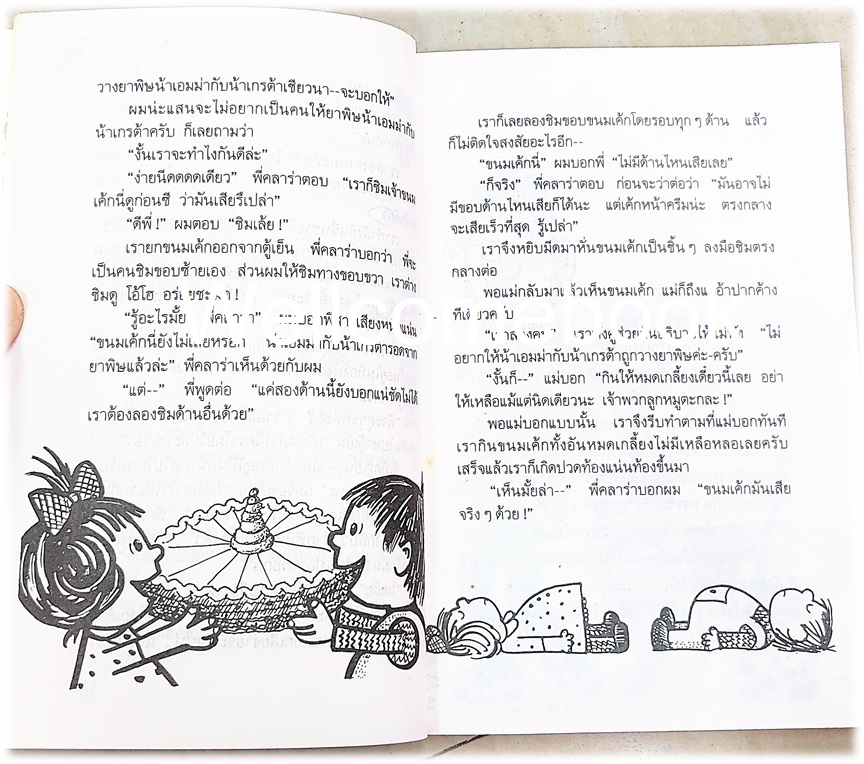 วางยาพิษน้าเอมม่ากับน้าเกรต้าเชียวนา--จะบอกให้"
ผมน่ะแสนจะไม่อยากเป็นคนให้ยาพิษน้าเอมม่ากับ
น้าเกรต้าครับ ก็เลยถามว่า
"งั้นเราจะทำไงกันดีล่ะ"
"ง่ายนีดดดดเดียว" พี่คลาร่าตอบ "เราก็ชิมเจ้าขนม
เค้กนี่ดูก่อนซี ว่ามันเสียรึเปล่า"
"ดีพี่!" ผมตอบ "ชิมเล้ย!"
เรายกขนมเค้กออกจากตู้เย็น พี่คลาร่าบอกว่า พี่จะ
เป็นคนชิมขอบซ้ายเอง ส่วนผมให้ชิมทางขอบขวา เราต่าง
ชิมดู โอ้โฮ
"รู้อะไรมั้ย
"ขนมเค้กนี่ยังไม่
ยาพิษแล้วล่ะ" พี่คลาร่าเห็นด้วยกับผม
"แต่--" พี่พูดต่อ "แค่สองด้านนี้ยังบอกแน่ชัดไม่ได้
เราต้องลองชิมด้านอื่นด้วย"
เราก็เลยลองชิมขอบขนมเค้กโดยรอบทุก ๆ ด้าน แล้ว
ก็ไม่ติดใจสงสัยอะไรอีก--
"ขนมเค้กนี่" ผมบอกพี่ "ไม่มีด้านไหนเสียเลย"
"ก็จริง" พี่คลาร่าตอบ ก่อนจะว่าต่อว่า "มันอาจไม่
มีขอบด้านไหนเสียก็ได้นะ แต่เค้กหน้าครีมน่ะ ตรงกลาง
จะเสียเร็วที่สุด รู้เปล่า"
เราจึงหยิบมีดมาหั่นขนมเค้กเป็นชิ้น ๆ ลงมือชิมตรง
กลางต่อ
พอแม่กลับมาแล้วเห็นขนมเค้ก แม่ก็ถึงแก่อ้าปากค้าง
ทีเดียวครับ
"ไม่
อยากให้น้าเอมม่ากับน้าเกรต้าถูกวางยาพิษค่ะ-ครับ"
"งั้นก็--" แม่บอก "กินให้หมดเกลี้ยงเดี๋ยวนี้เลย อย่า
ให้เหลือแม้แต่นิดเดียวนะ เจ้าพวกลูกหมูตะกละ!"
พอแม่บอกแบบนั้น เราจึงรีบทำตามที่แม่บอกทันที
เรากินขนมเค้กทั้งอันหมดเกลี้ยงไม่มีเหลือหลอเลยครับ
เสร็จแล้วเราก็เกิดปวดท้องแน่นท้องขึ้นมา
"เห็นมั้ยล่า--" พี่คลาร่าบอกผม "ขนมเค้กมันเสีย
จริง ๆ ด้วย!"